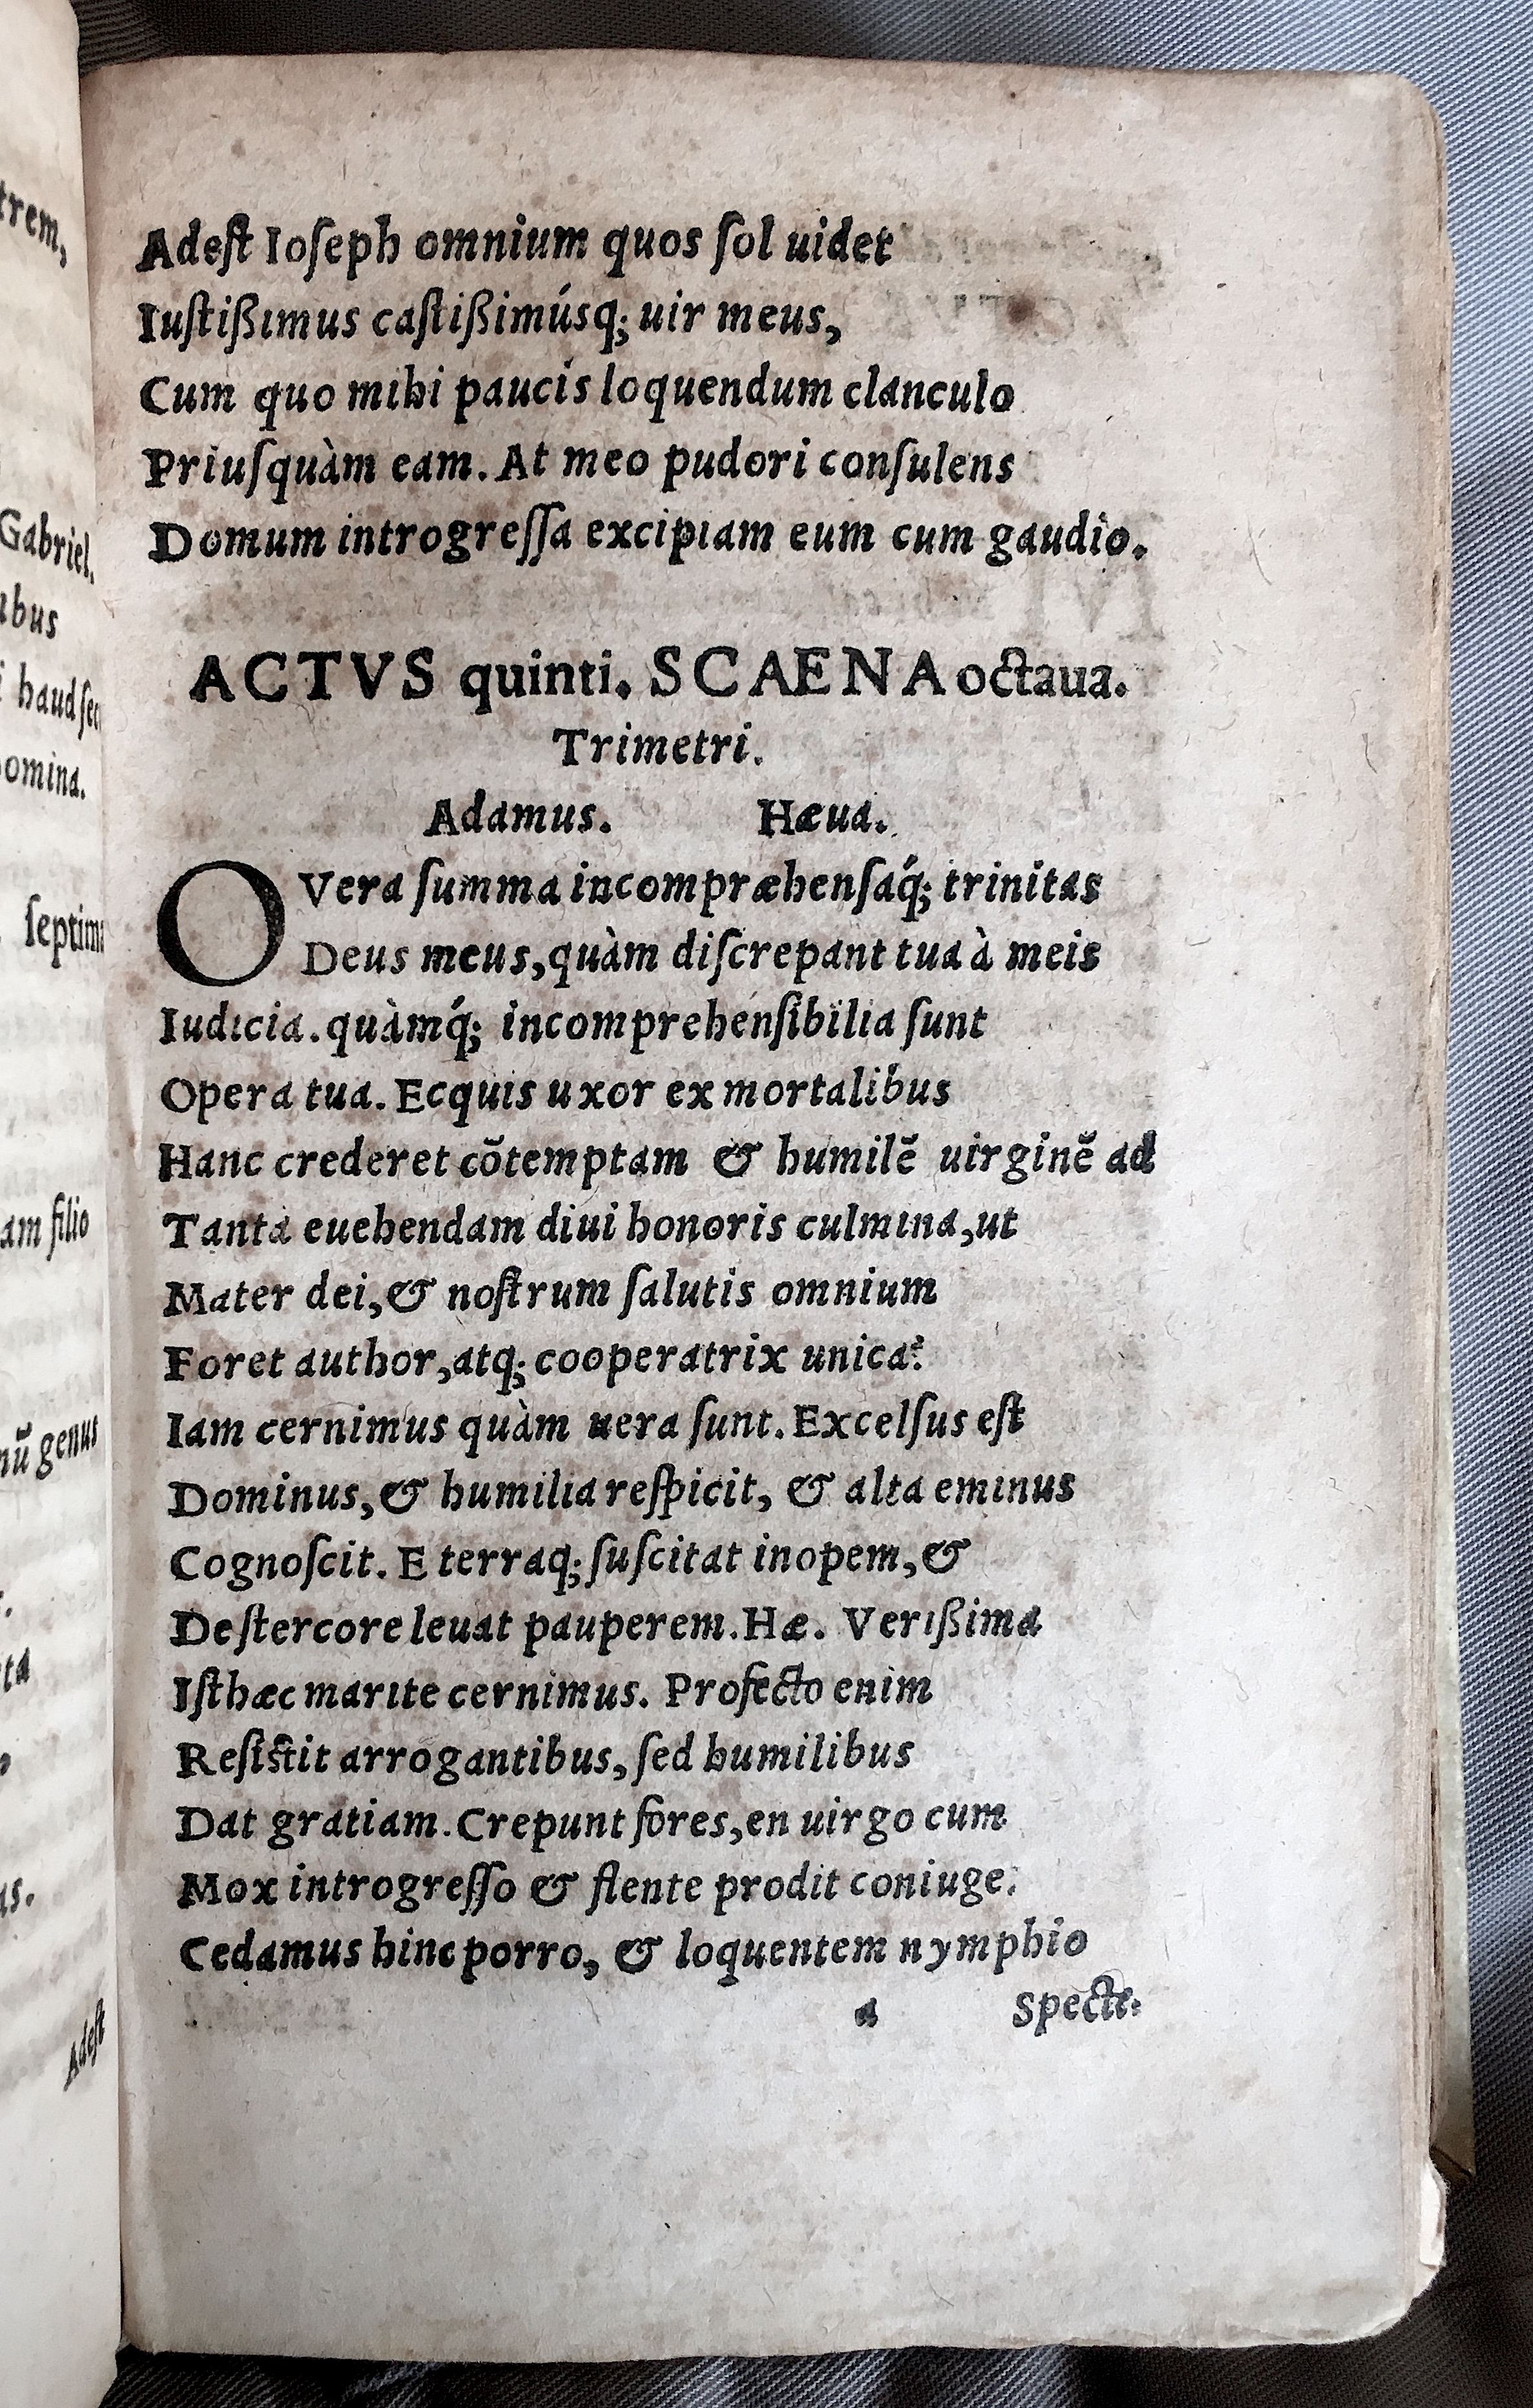 trem,
Gabriel.
omina.
am filio
genus
Adeſt
Adeſt Ioſeph omnium quos ſol uidet
Iuſtißimus caſtißimúsq; uir meus,
Cum quo mihi paucis loquendum clanculo
Priuſquàm eam. At meo pudori conſulens
Domum introgreſſa excipiam eum cum gaudio.
ACTVS quinti. SCAENA octaua.
Trimetri.
Adamus. Hæua.
O Vera ſumma incompræhenſaq́; trinitas
Deus meus, quàm diſcrepant tua à meis
Iudicia. quàmq́; incomprehenſibilia ſunt
Opera tua. Ecquis uxor ex mortalibus
Hanc crederet cõtemptam & humilẽ uirginẽ ad
Tanta euehendam diui honoris culmina, ut
Mater dei, & noſtrum ſalutis omnium
Foret author, atq; cooperatrix unica?
Iam cernimus quàm uera ſunt. Excelſus eſt
Dominus, & humilia reſpicit, & alta eminus
Cognoſcit. E terraq; ſuſcitat inopem, &
De ſtercore leuat pauperem. Hæ. Verißima
Iſthæc marite cernimus. Profecto enim
Reſiſtit arrogantibus, ſed humilibus
Dat gratiam. Crepunt fores, en uirgo cum
Mox introgreſſo & flente prodit coniuge.
Cedamus hinc porro, & loquentem nymphio
a Specte-